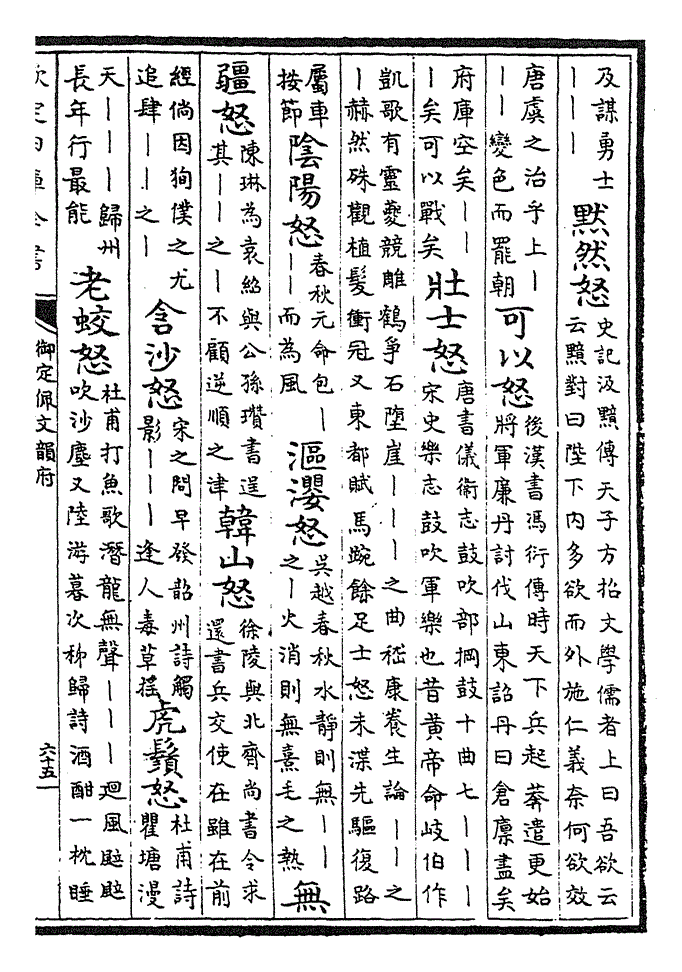 及謀勇士
｜｜｜
默然怒
史記汲黯傳天子方招文學儒者上曰吾欲云
云黯對曰陛下内多欲而外施仁義奈何欲效
唐虞之治乎上｜
｜｜變色而罷朝
可以怒
後漢書馮衍傳時天下兵起莽遣更始
將軍廉丹討伐山東詔丹曰倉廪盡矣
府庫空矣｜｜
｜矣可以戰矣
壯士怒
唐書儀衛志鼓吹部掆鼓十曲七｜｜｜
宋史樂志鼓吹軍樂也昔黄帝命岐伯作
凱歌有靈夔競雕鶚爭石墜崖｜｜｜之曲嵇康養生論｜｜之
｜赫然殊觀植髮衝冠又東都賦馬踠餘足士怒未渫先驅復路
屬車
按節
陰陽怒
春秋元命包｜
｜｜而為風
漚瀴怒
吳越春秋水靜則無｜｜
之｜火消則無熹毛之熱
無
疆怒
陳琳為袁紹與公孫瓚書逞
其｜｜之｜不顧逆順之津
韓山怒
徐陵與北齊尚書令求
還書兵交使在雖在前
經倘因狥僕之尤
追肆｜｜之｜
含沙怒
宋之問早發韶州詩觸
影｜｜｜逢人毒草揺
虎鬚怒
杜甫詩
瞿塘漫
天｜｜｜歸州
長年行最能
老蛟怒
杜甫打魚歌潛龍無聲｜｜｜迴風颭颭
吹沙塵又陸游暮次秭歸詩酒酣一枕睡
欽定四庫全書
御定佩文韻府
六十五